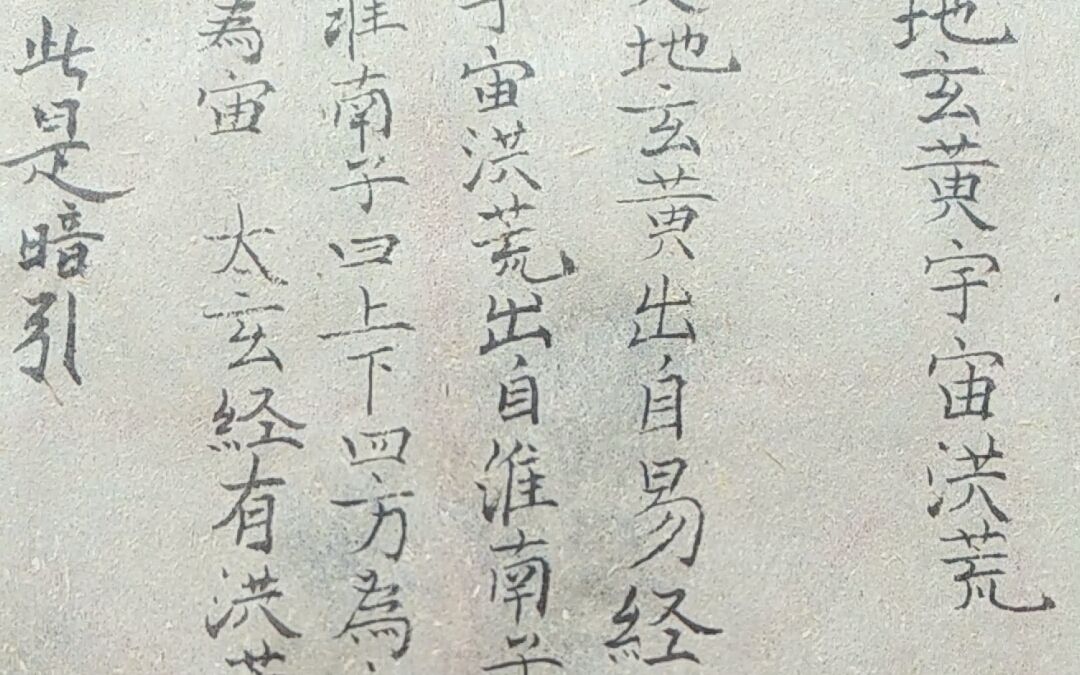 地玄黄宇宙洪荒
天地玄黄出自易経
宇宙洪荒出自淮南子
淮南子曰上下四方為
為宙 太玄経有洪荒
此是暗引